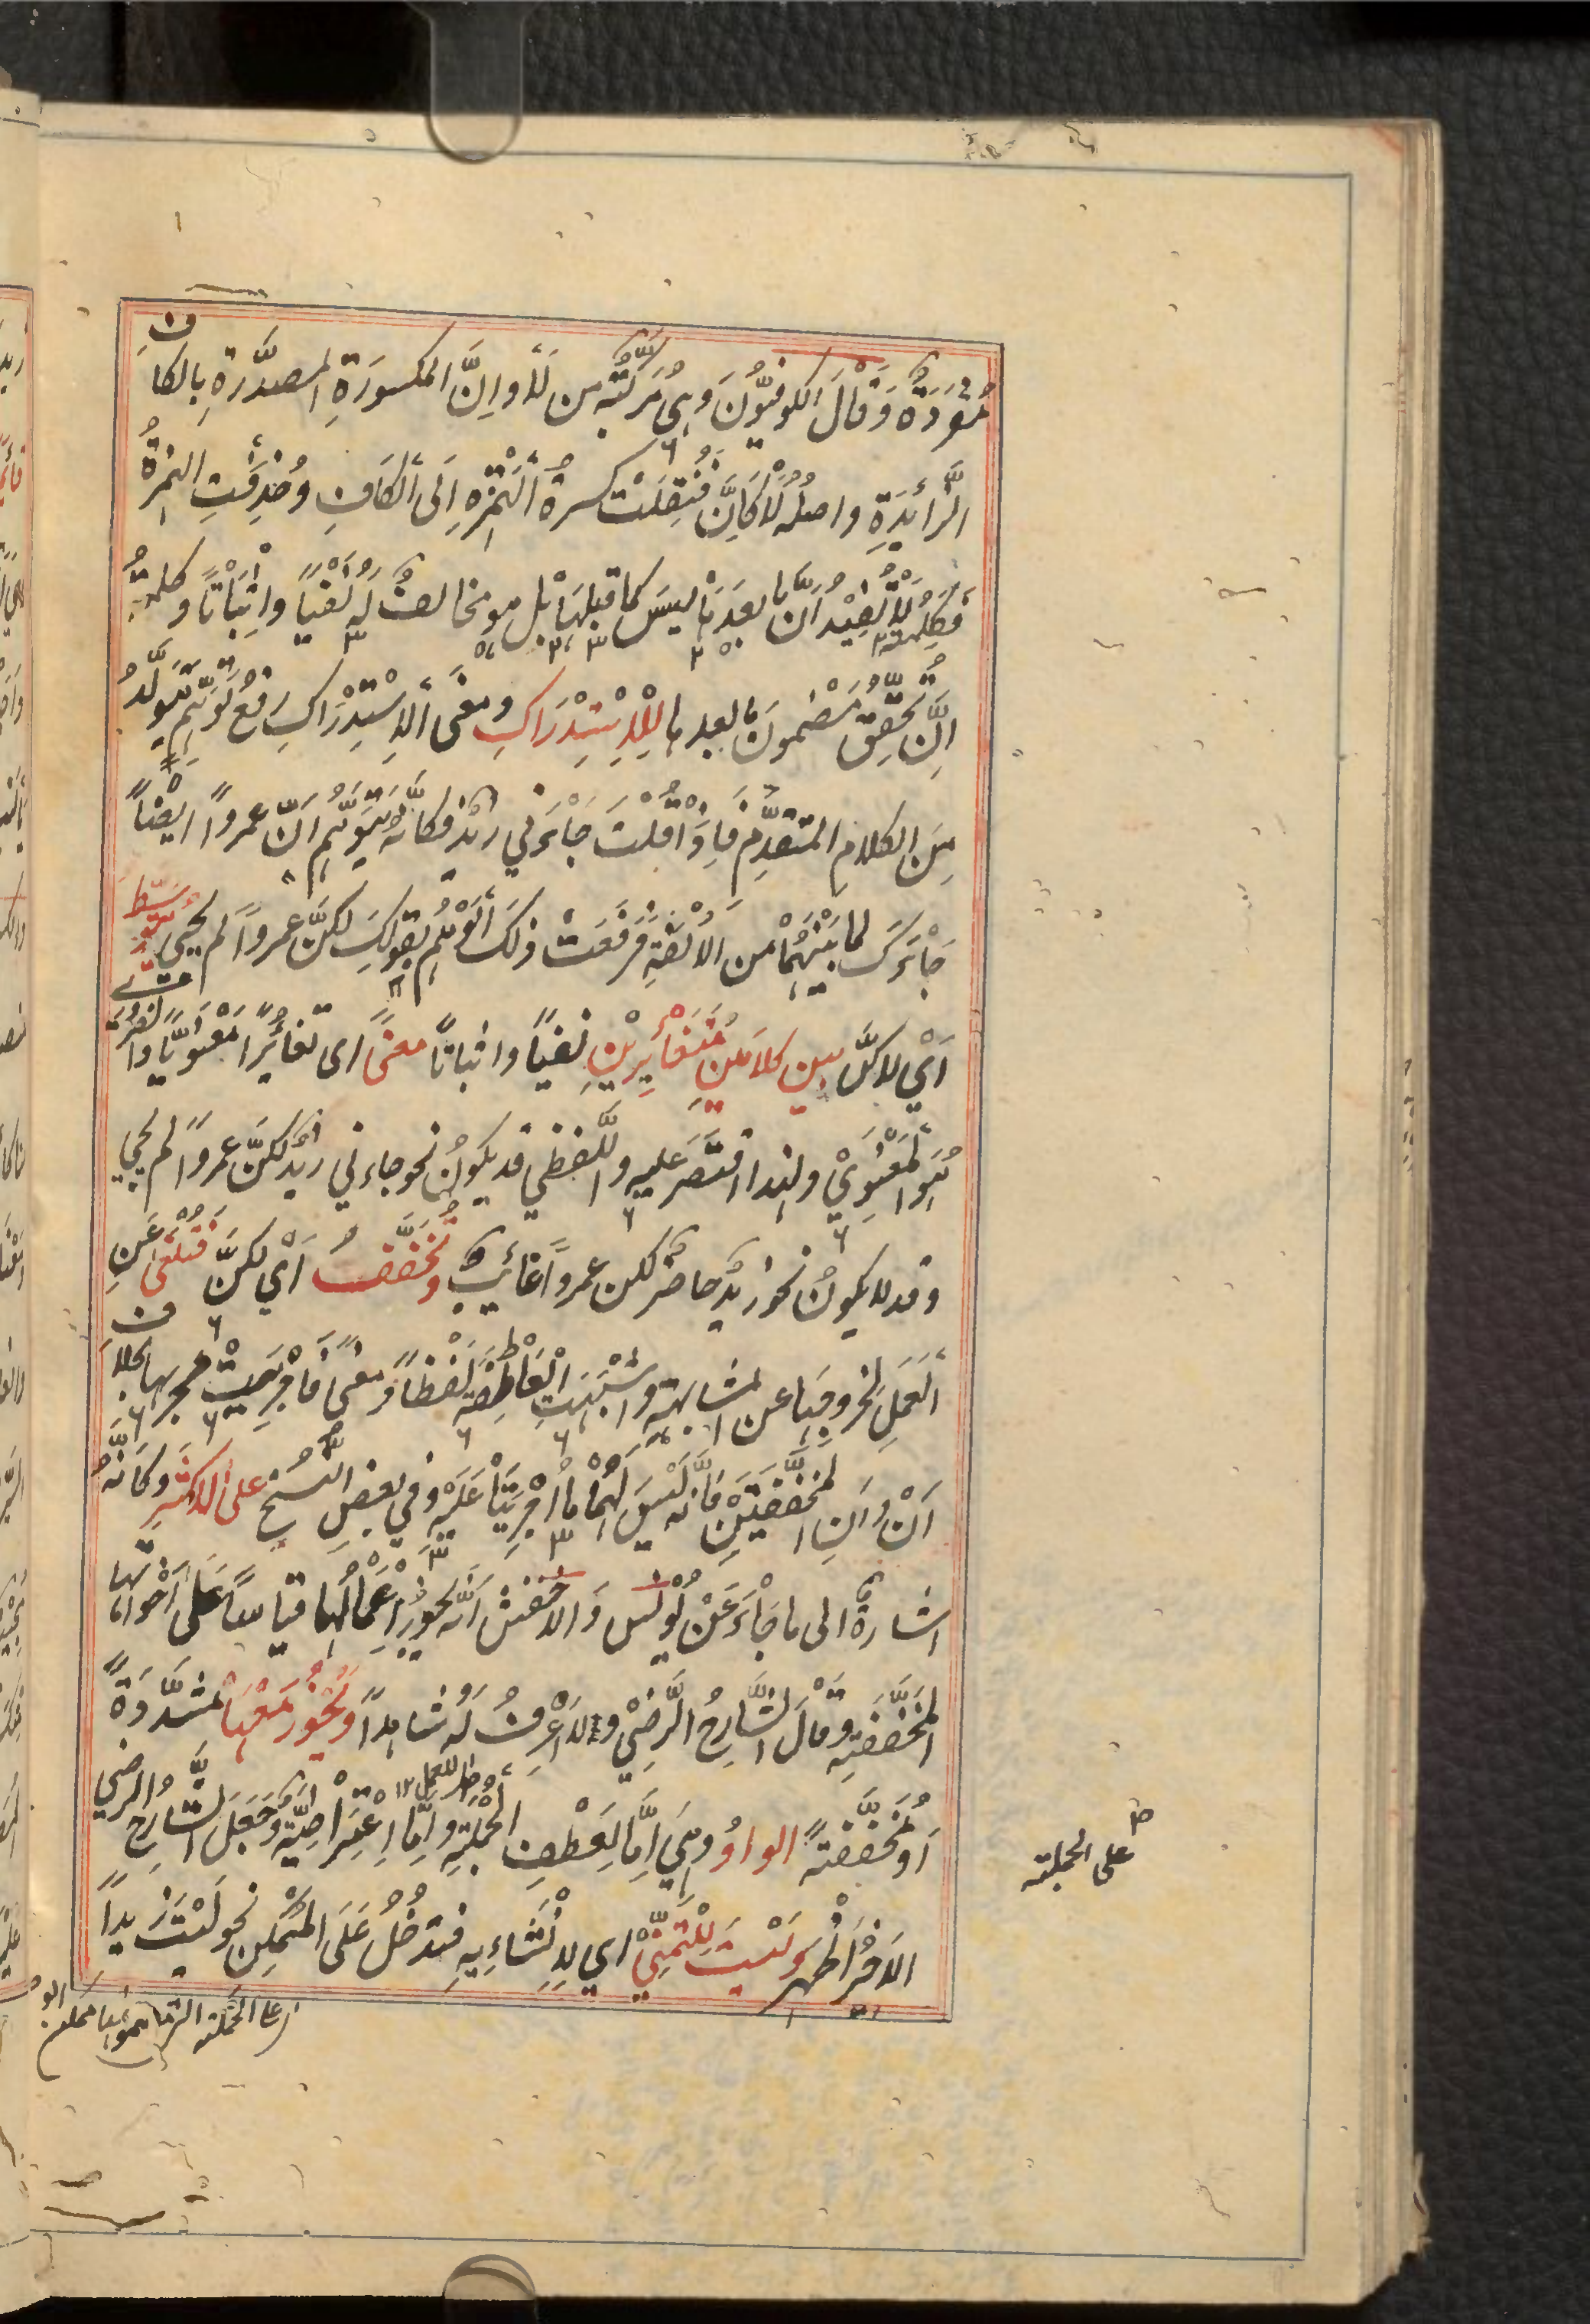 مُفْرَدَةٌ وَقَالَ الكوفيُّونَ وهِىَ مُرَكَّبَةٌ من لَا واِنَّ المكسورَةِ المصدَّرَةِ بِالكاف
الزَّائِدَةِ واصلُهُ لَا كَاِنَّ فَنُقِلَتْ كسرةُ الْهَمْزَةِ اِلَى الْكَافِ وحُذِفَتِ الهمزةُ
فكلمة لَا تُفِيْدُ اَنَّ ما بعدَهَا ليسَ كما قبلهَا بل هو مخالفٌ لَهُ نَفْيًا واِثْبَاتًا وكلمةُ
اِنَّ تُحَقِّقُ مَضْمُونَ ما بعدها لِلْاِسْتِدْرَاكِ ومعنَى الْاِسْتِدْرَاكِ رفعُ تَوَهُّمٍ يَتَوَلَّدُ
مِنَ الكلامِ المتقدِّمِ فَاِذَا قُلْتَ جَاءَنِي زَيْدٌ فكانَّهُ تُوُهِّمَ اَنَّ عمروًا اَيْضًا
جَاءَكَ لما بَيْنَهُمَا من الاُلْفَةِ فَرَفَعْتَ ذلكَ الْوَهْمَ بقولِكَ لكنَّ عمروًا لم يجئ تتوسّط
اَيْ لاكنَّ بين كلامَيْنِ مُتَغَايِرَيْنِ نفيًا واثباتًا معنًى اى تغايُرًا مَعْنَوِيًّا والضروري
هُوَ الْمَعْنَوِيُّ ولهذا اقتَصَرَ عليهِ واللَّفظي قد يكونُ نحو جاءني زيدٌ لكنَّ عمروًا لم يجئ
وقد لا يكونُ نحو زيدٌ حاضرٌ لكن عمروًا غائبٌ وتُخَفَّفُ اَيْ لكنَّ فَتُلْغَى عَنِ
الْعَمَلِ لخروجِهَا عن المشابهةِ واَشْبَهَتِ الْعَاطِفَةَ لَفْظًا ومعنًى فَاُجْرِيَتْ مجريها بخلاف
اَنْ وَاِنِ المخفَّفَتَيْنِ فَانه لَيْسَ لَهُمَا ما اُجْرِيَتَا عَلَيْهِ وفي بعضِ النُّسَخِ على الاكثرِ وكانَّهُ
اشارةٌ الى ما جَاءَ عَنْ يُونُسَ وَالاخفش اَنَّه يجوزُ اِعْمَالُهَا قياسًا عَلَى اَخَوَاتِهَا
المخَفَّفَةِ وقَالَ الشَّارِحُ الرَّضِيُّ ولَا اَعْرِفُ لَهُ شاهدًا ويَجُوزُ مَعَهَا مشدَّدَةً
اَوْ مُخَفَّفَةً الواوُ وهِيَ اِمَّا لِعَطْفِ الجُمْلَةِ واِمَّا اِعْتِرَاضِيَّةٌ وَجَعَلَ الشَّارِحُ الرضي
الاخيرَ اَظْهَرَ ولَيْتَ لِلْتَّمَنِّي اي لِاِنْشَاءِهِ فتدخُلُ عَلَى الْمُمْكِنِ نحو لَيْتَ زيدًا
على الجملة